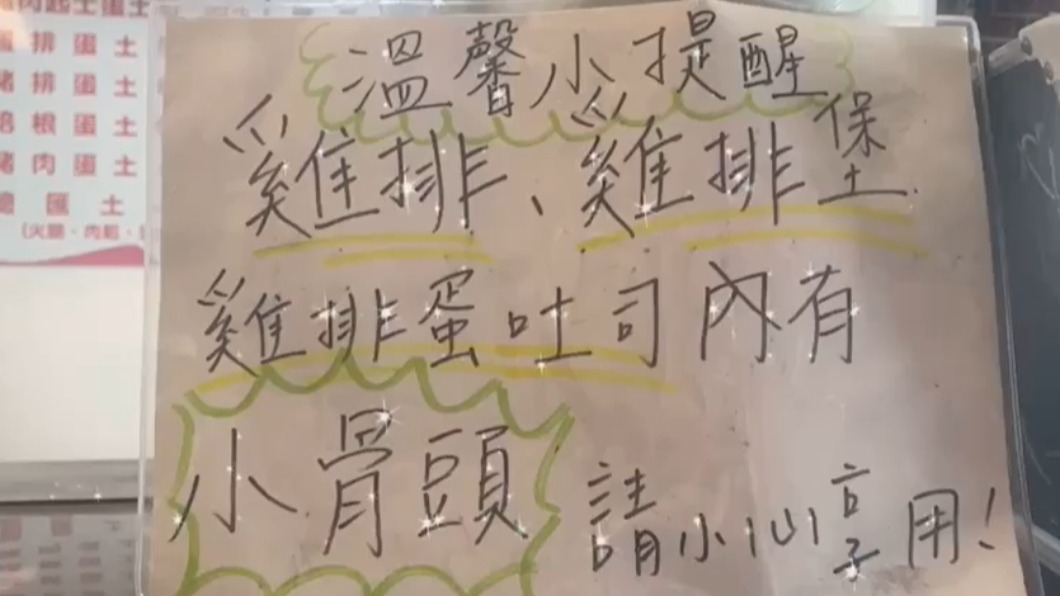 肉起士蛋土
排蛋土
豬排蛋土
培根蛋土
豬肉蛋土
總匯土
(火腿、肉鬆、
溫馨小提醒
雞排、雞排堡
雞排蛋吐司內有
小骨頭
請小心享用!